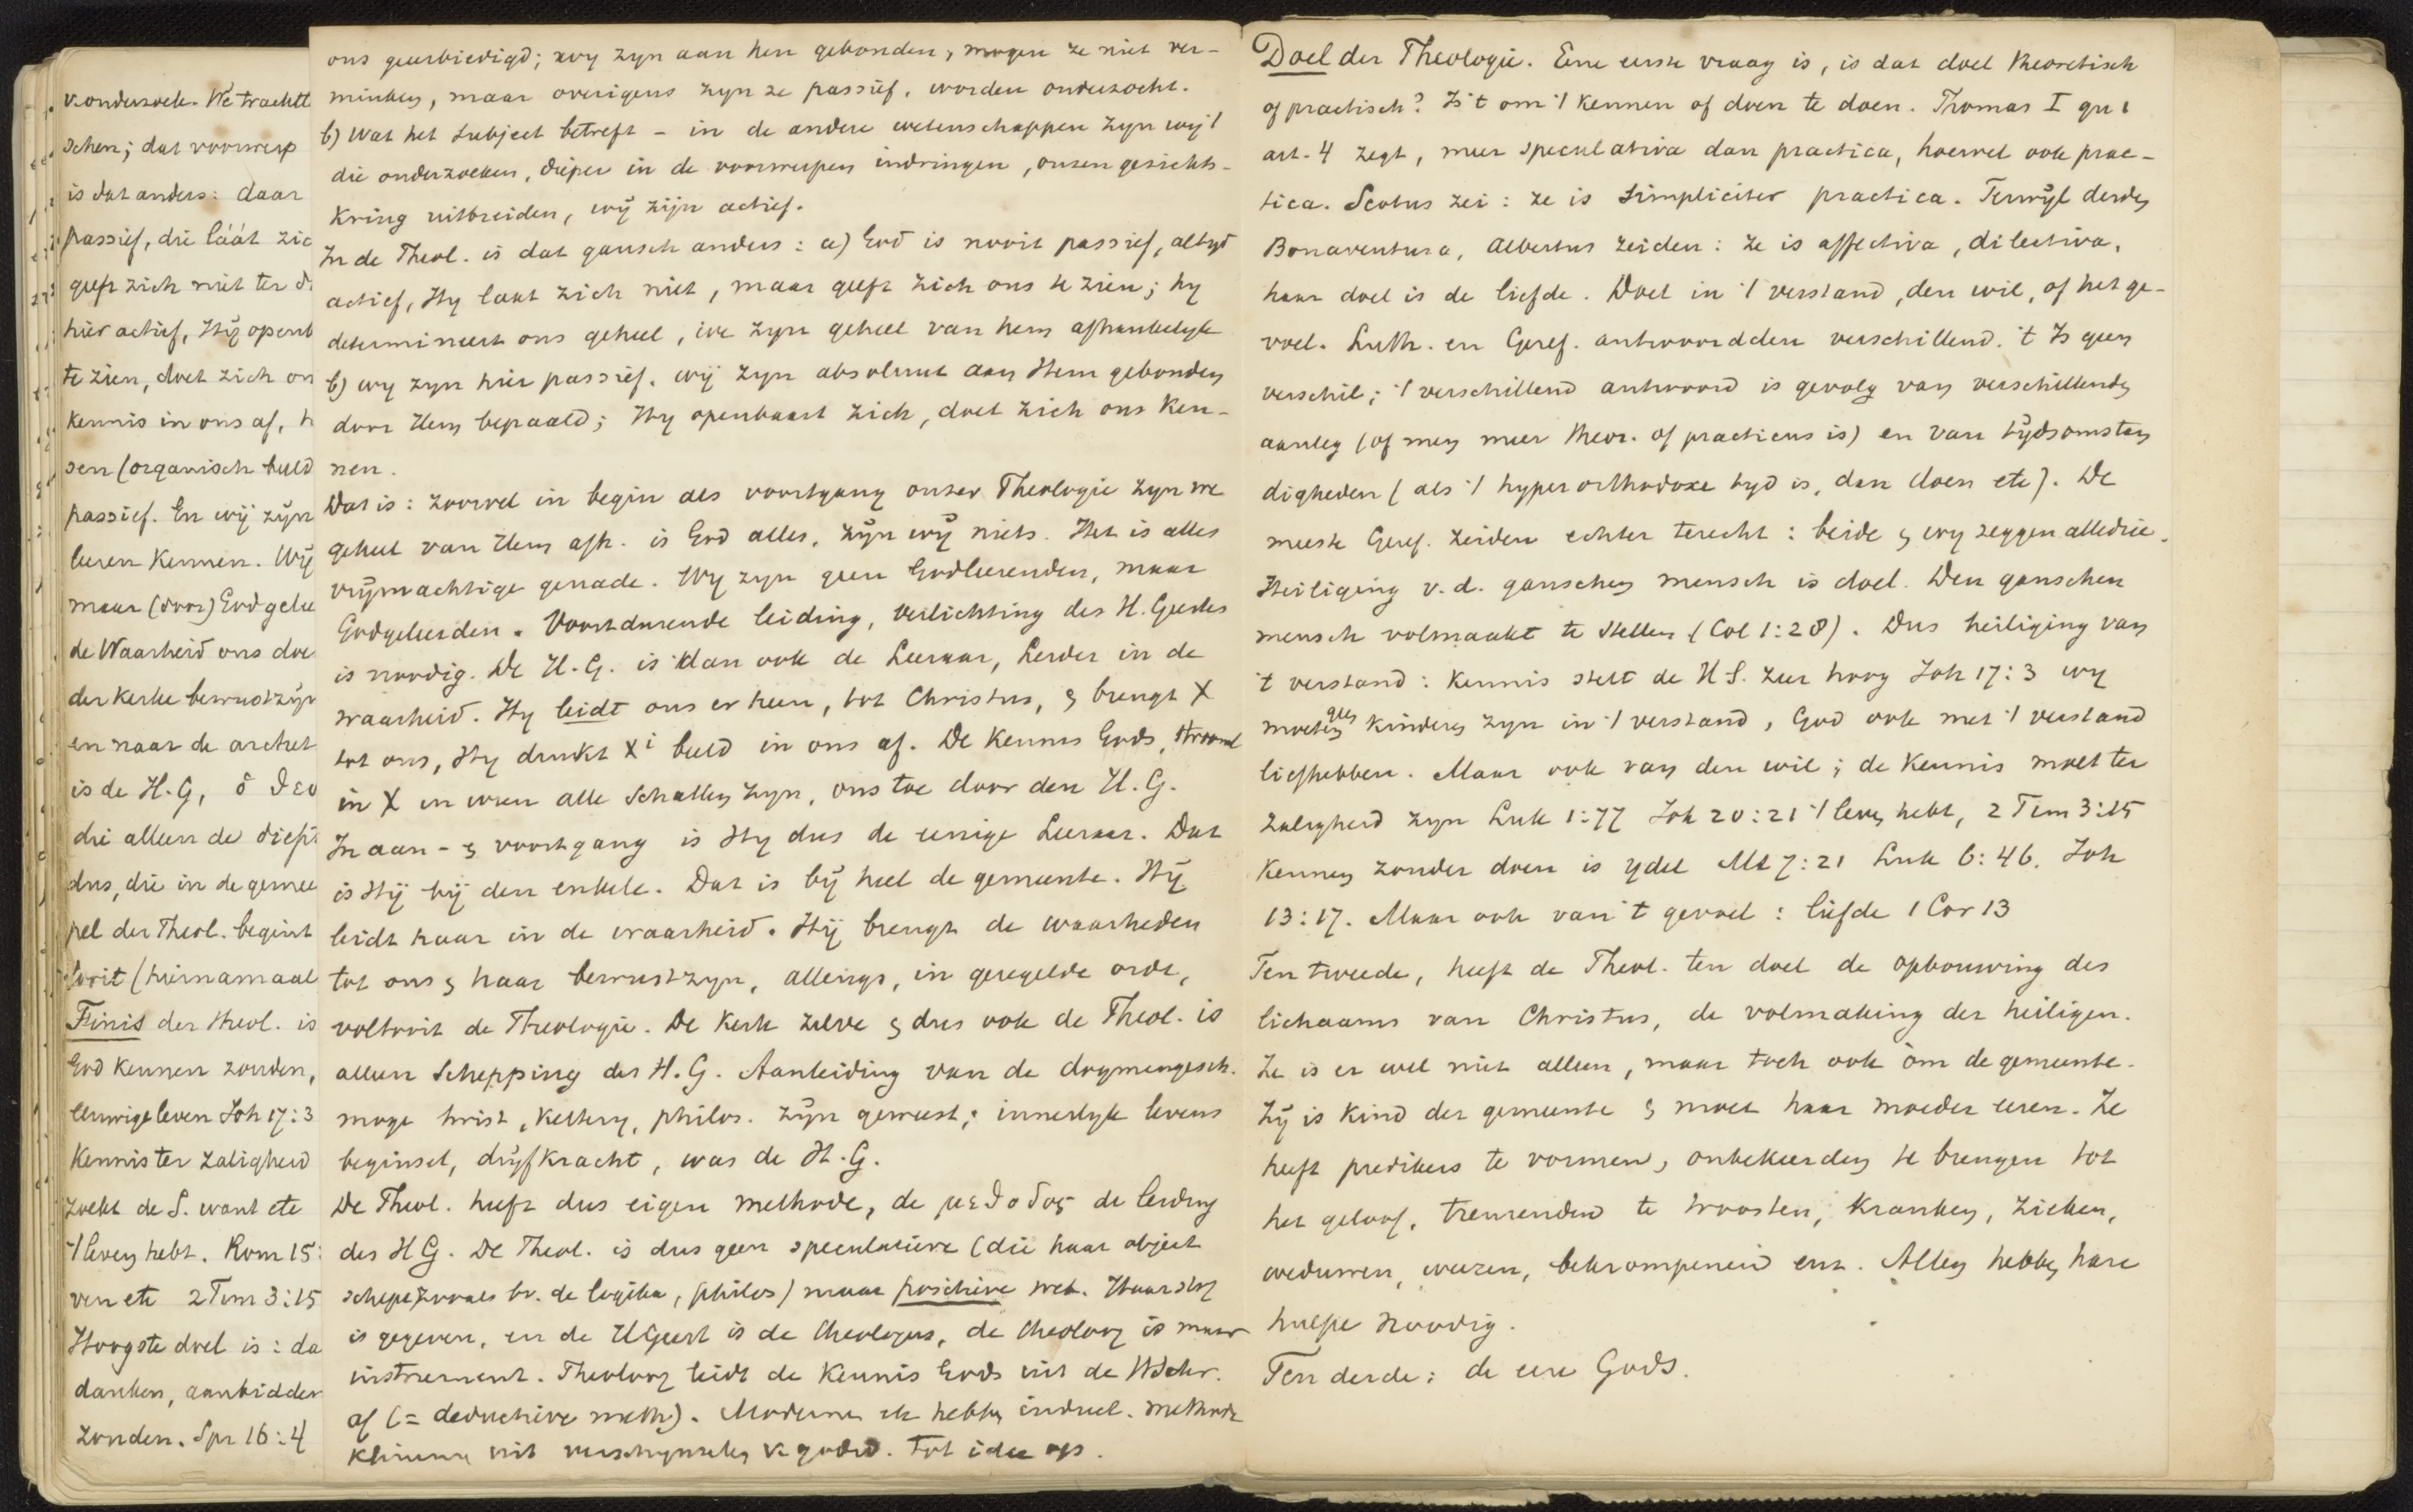 v. onderzoek. We tracht
schen; dat voorwerp
is dat anders: daar
passief, die láát zic
geeft zich niet ter
hier actief, Hij openb
te zien, doet zich on
kennis in ons af, h
sen (organisch beeld
passief. En wij zijn
leeren kennen. Wij
maar (door) God gelee
de Waarheid ons doe
der kerke bewustzijn
en naar de archet
is de H.G, ὁ θεο
die alleen de diept
dus, die in de gemee
pel der Theol. begint
tooit (hiernamaal
Finis der theol. is
God kennen zouden,
Eeuwige leven Joh 17:3
kennis ter zaligheid
zoekt de S. want etc
't leven hebt. Rom 15:
ven etc 2 Tim 3:15
Hoogste doel is: da
danken, aanbidden
zouden. Spr 16:4
ons geeerbiedigd; wy zyn aan hen gebonden, mogen ze niet ver-
minken, maar overigens zyn ze passief, worden onderzocht.
b) Wat het subject betreft – in de andere wetenschappen zyn wy 't
die onderzoeken, dieper in de voorwerpen indringen, onzen gezichts-
kring uitbreiden, wij zijn actief.
In de Theol. is dat gansch anders: a) God is nooit passief, altyd
actief, Hy laat zich niet, maar geeft zich ons te zien; hy
determineert ons geheel, we zyn geheel van hem afhankelyk
b) wy zyn hier passief. wij zyn absoluut aan Hem gebonden
door Hem bepaald; Hy openbaart zich, doet zich ons ken-
nen.
Dat is: zoowel in begin als voortgang onzer Theologie zyn we
geheel van Hem afh. is God alles, zijn wij niets. Het is alles
vrijmachtige genade. Wy zyn geen Godleerenden, maar
Godgeleerden. Voortdurende leiding, verlichting des H. Geestes
is noodig. De H.G. is dan ook de Leeraar, Leider in de
waarheid. Hy leidt ons er heen, tot Christus, & brengt X
tot ons, Hy drukt Xi beeld in ons af. De kennis Gods, stroomt
in X in wien alle schatten zyn, ons toe door den H.G.
In aan- & voortgang is Hy dus de eenige Leeraar. Dat
is Hij bij den enkele. Dat is bij heel de gemeente. Hij
leidt haar in de waarheid. Hij brengt de waarheden
tot ons & haar bewustzyn, allengs, in geregelde orde,
voltooit de Theologie. De kerk zelve & dus ook de Theol. is
alleen Schepping des H.G. Aanleiding van de dogmengesch.
moge twist, kettery, philos. zijn geweest; innerlyk levens
beginsel, drijfkracht, was de H.G.
De Theol. heeft dus eigen methode, de μεθοδος de leiding
des HG. De Theol. is dus geen speculatieve (die haar object
schept zooals bv. de logika, philos) maar positieve wet. Haar stof
is gegeven, en de HGeest is de theologus, de theoloog is maar
instrument. Theoloog leidt de kennis Gods uit de HSchr.
af (= deductieve meth). Moderne etc hebben induct. methode
klimmen uit verschynselen v. godsd. tot idee op.
Doel der Theologie. Eene eerste vraag is, is dat doel theoretisch
of practisch? Is 't om 't kennen of doen te doen. Thomas I qu 1
art. 4 zegt, meer speculativa dan practica, hoewel ook prac-
tica. Scotus zei: ze is simpliciter practica. Terwijl derden
Bonaventura, Albertus zeiden: ze is affectiva, dilectiva,
haar doel is de liefde. Doel in 't verstand, den wil, of het ge-
voel. Luth. en Geref. antwoordden verschillend. 't Is geen
verschil; 't verschillend antwoord is gevolg van verschillenden
aanleg (of men meer theor. of practicus is) en van tijdsomstan
digheden (als 't hyperorthodoxe tyd is, dan doen etc). De
meeste Geref. zeiden echter terecht: beide & wy zeggen alledrie.
Heiliging v.d. ganschen mensch is doel. Den ganschen
mensch volmaakt te stellen (Col 1:28). Dus heiliging van
't verstand: kennis stelt de H S. zeer hoog Joh 17:3 wy
moeten geen kinderen zyn in 't verstand, God ook met 't verstand
liefhebben. Maar ook van den wil; de kennis moet ter
zaligheid zyn Luk 1:77 Joh 20:21 't leven hebt, 2 Tim 3:15
Kennen zonder doen is ydel Mt 7:21 Luk 6:46. Joh
13:17. Maar ook van 't gevoel: liefde 1 Cor 13
Ten tweede, heeft de Theol. ten doel de opbouwing des
lichaams van Christus, de volmaking der heiligen.
Ze is er wel niet alleen, maar toch ook òm de gemeente.
Zij is kind der gemeente & moet haar moeder eeren. Ze
heeft predikers te vormen, onbekeerden te brengen tot
het geloof, treurenden te troosten, kranken, zieken,
weduwen, weezen, bekrompenen enz. Allen hebben hare
hulpe noodig.
Ten derde: de eere Gods.